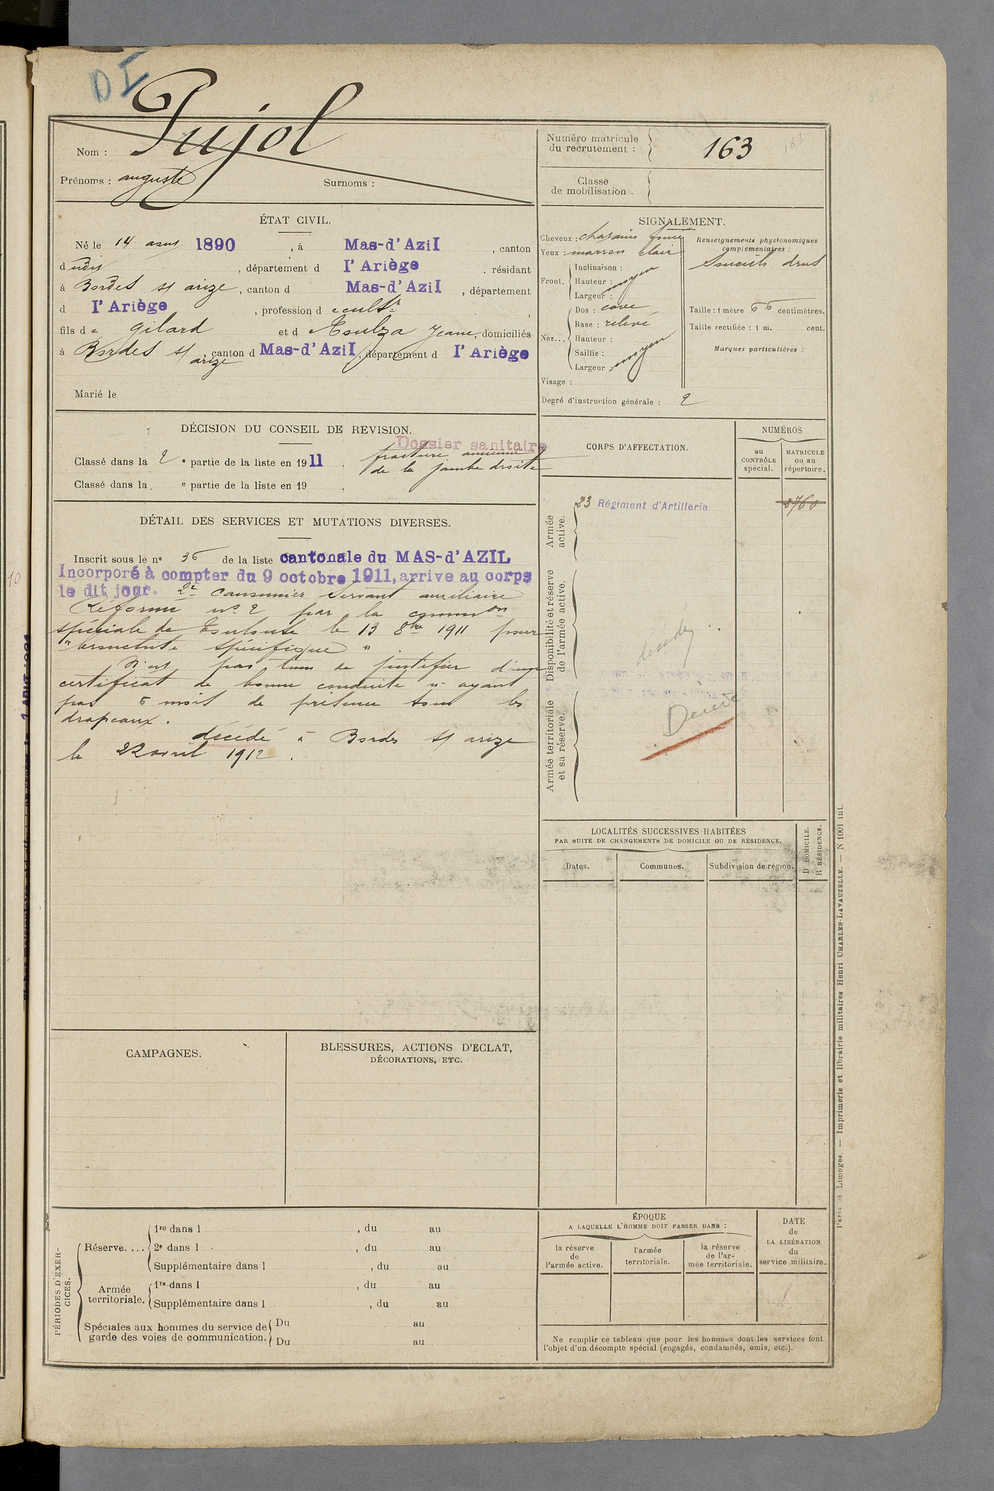 DI
Nom : Pujol
Prénoms : auguste Surnoms :
Numéro matricule
du recrutement : 163
163
Classe
de mobilisation.
ÉTAT CIVIL.
Né le 14 1890, à Mas-d'Azil, canton
d udit, département d l'Ariège. résidant
à Bordes s/ arize, canton d Mas-d'Azil, département
d l'Ariège, profession d e cultr,
fils d e Gilard et d e Jeane, domiciliés
à Bordes s/ arize canton d Mas-d'Azil, département d l'Ariège
Marié le
SIGNALEMENT.
Cheveux : chatains
Yeux : marron clair
Front.
Inclinaison :
Hauteur : moyen
Largeur :
Nez...
Dos : cave
Base : relevé
Hauteur :
Saillie : moyen
Largeur :
Visage :
Degré d'instruction générale : 2
Renseignements physionomiques
complémentaires :
Sourcils drus
Taille : 1 mètre 66 centimètres.
Taille rectifiée : 1 m. cent.
Marques particulières :
DÉCISION DU CONSEIL DE REVISION.
Dossier sanitaire
Classé dans la 2e partie de la liste en 1911.
fracture ancienne
de la jambe droite
Classé dans la e partie de la liste en 19
CORPS D'AFFECTATION.
NUMÉROS
au
CONTRÔLE
spécial.
MATRICULE
ou au
répertoire.
Armée
active.
23 Régiment d'Artillerie
8760
Disponibilité et réserve
de l'armée active.
décédé
Armée territoriale
et sa réserve.
Décédé
DÉTAIL DES SERVICES ET MUTATIONS DIVERSES.
Inscrit sous le n° 36 de la liste cantonale du MAS-d'AZIL
Incorporé à compter du 9 octobre 1911, arrive au corps
le dit jour. 2e Canonnier servant auxiliaire
Réformé n° 2 par la common
spéciale de Toulouse le 13 8bre 1911 pour
"bronchite spécifique"
N'est pas tenu de justifier d'un
certificat de bonne conduite n'ayant
pas 6 mois de présence sous les
drapeaux.
décédé à Bordes s/ arize
le 22 avril 1912.
LOCALITÉS SUCCESSIVES HABITÉES
PAR SUITE DE CHANGEMENTS DE DOMICILE OU DE RÉSIDENCE.
Dates.
Communes.
Subdivision de région.
D DOMICILE.
R RÉSIDENCE.
CAMPAGNES.
BLESSURES, ACTIONS D'ÉCLAT,
DÉCORATIONS, ETC.
PÉRIODES D'EXER-
CICES.
Réserve....
1re dans l , du au
2e dans l , du au
Supplémentaire dans l , du au
Armée
territoriale.
1re dans l , du au
Supplémentaire dans l , du au
Spéciales aux hommes du service de
garde des voies de communication.
Du au
Du au
ÉPOQUE
A LAQUELLE L'HOMME DOIT PASSER DANS :
la réserve
de
l'armée active.
l'armée
territoriale.
la réserve
de l'ar-
mée territoriale.
DATE
de
LA LIBÉRATION
du
service militaire.
Ne remplir ce tableau que pour les hommes dont les services font
l'objet d'un décompte spécial (engagés, condamnés, omis, etc.).
Paris et Limoges. — Imprimerie et librairie militaires Henri CHARLES-LAVAUZELLE. — N 1001 int.